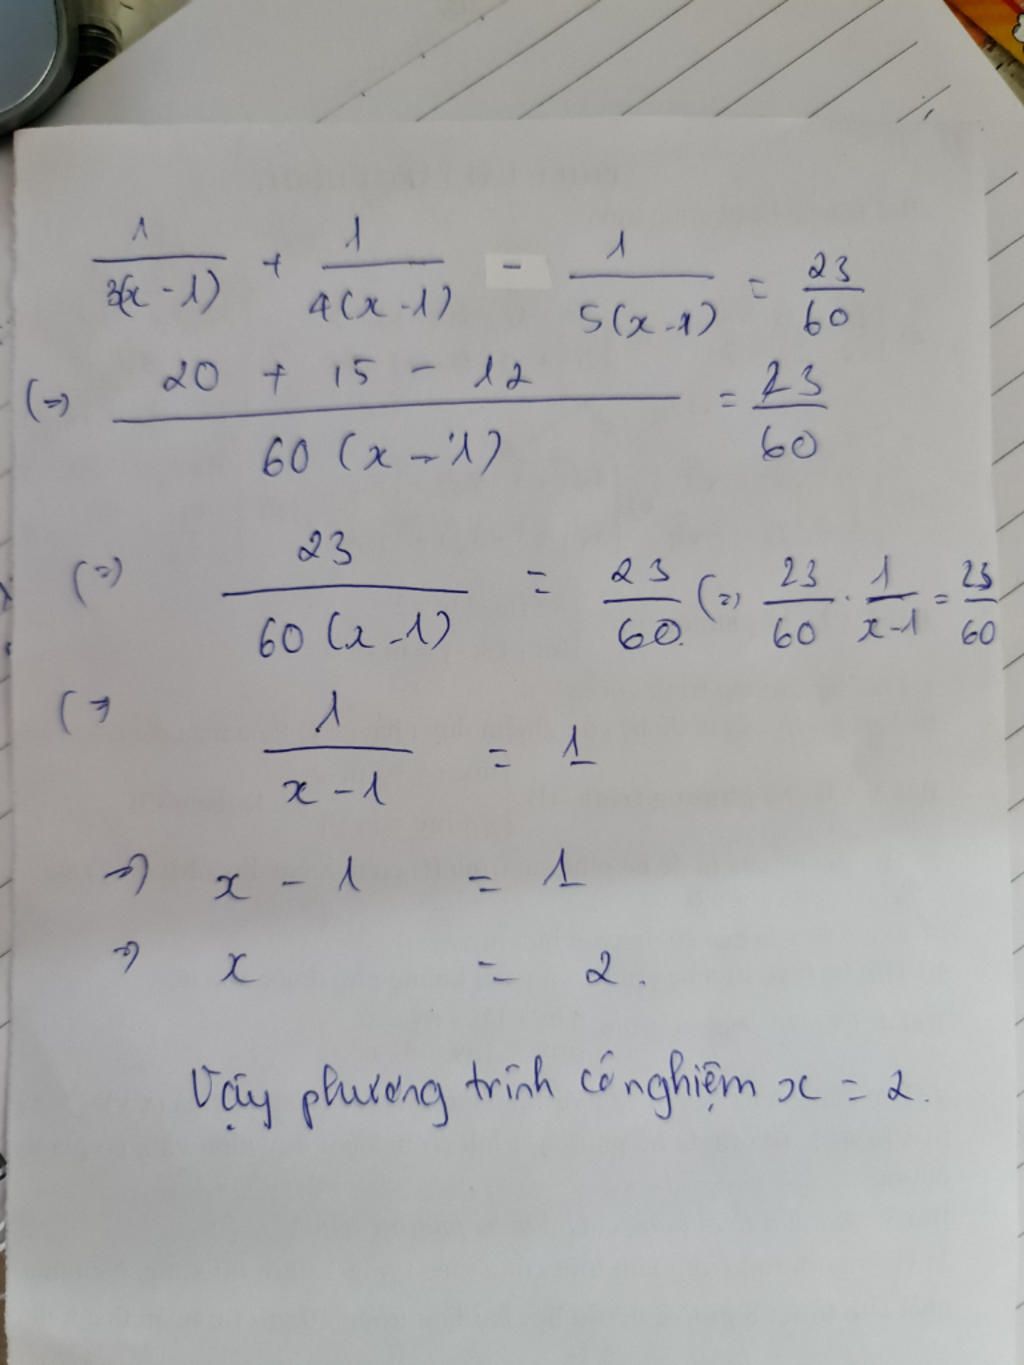 1/3(x - 1) + 1/4(x - 1) - 1/5(x - 1) = 23/60
(=) 20 + 15 - 12/60(x - 1) = 23/60
(=) 23/60(x - 1) = 23/60 (=) 23/60 . 1/x-1 = 23/60
(=) 1/x - 1 = 1
=> x - 1 = 1
=> x = 2.
Vậy phương trình có nghiệm x = 2.